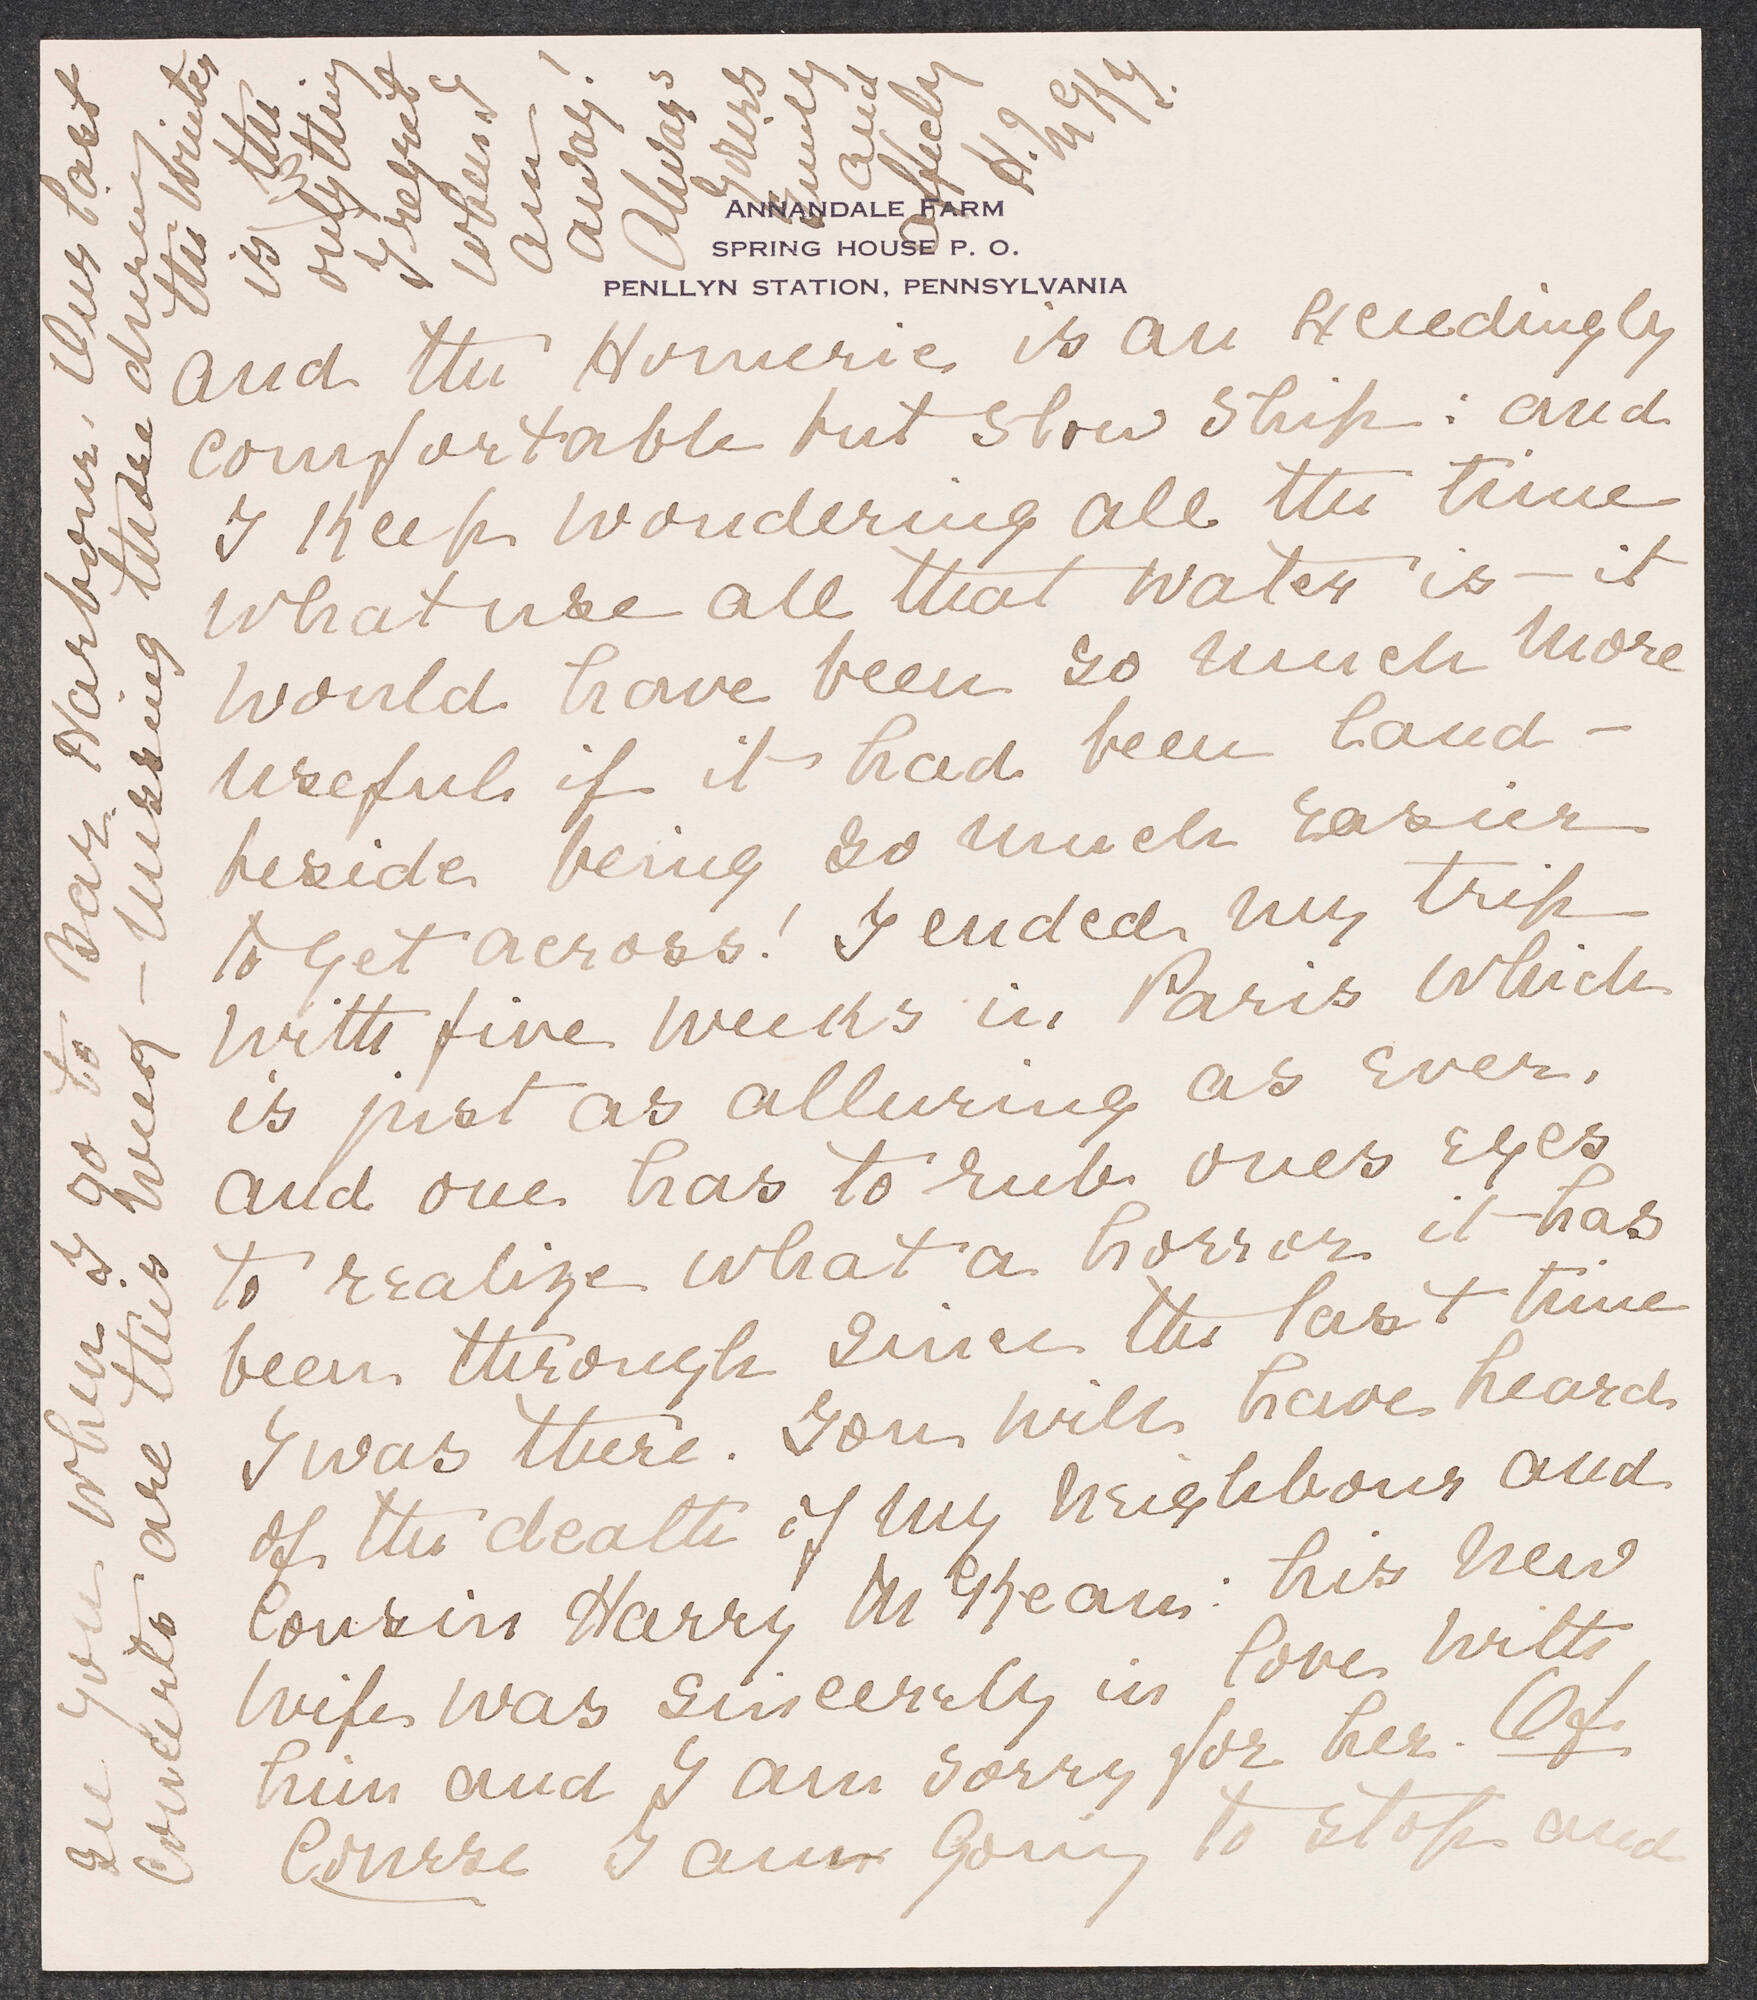 ANNANDALE FARM
SPRING HOUSE P. O.
PENLLYN STATION, PENNSYLVANIA
and the Homeric is an exceedingly
comfortable but slow ship: and
I keep wondering all the time
what use all that water is – it
would have been so much more
useful if it had been land –
beside being so much easier
to get across! I ended my trip
with five weeks in Paris which
is just as alluring as ever.
and one has to rub ones eyes
to realize what a horror it has
been through since the last time
I was there. You will have heard
of the death of my neighbour and
Cousin Harry McKean: his new
wife was sincerely in love with
him and I am sorry for her. Of
Course I am going to stop and
see you when I go to Bar Harbour. Our last
concerts are this week – Missing these during
the winter
is the
only thing
I regret
when I
am
away!
Always
yours
and
affecly